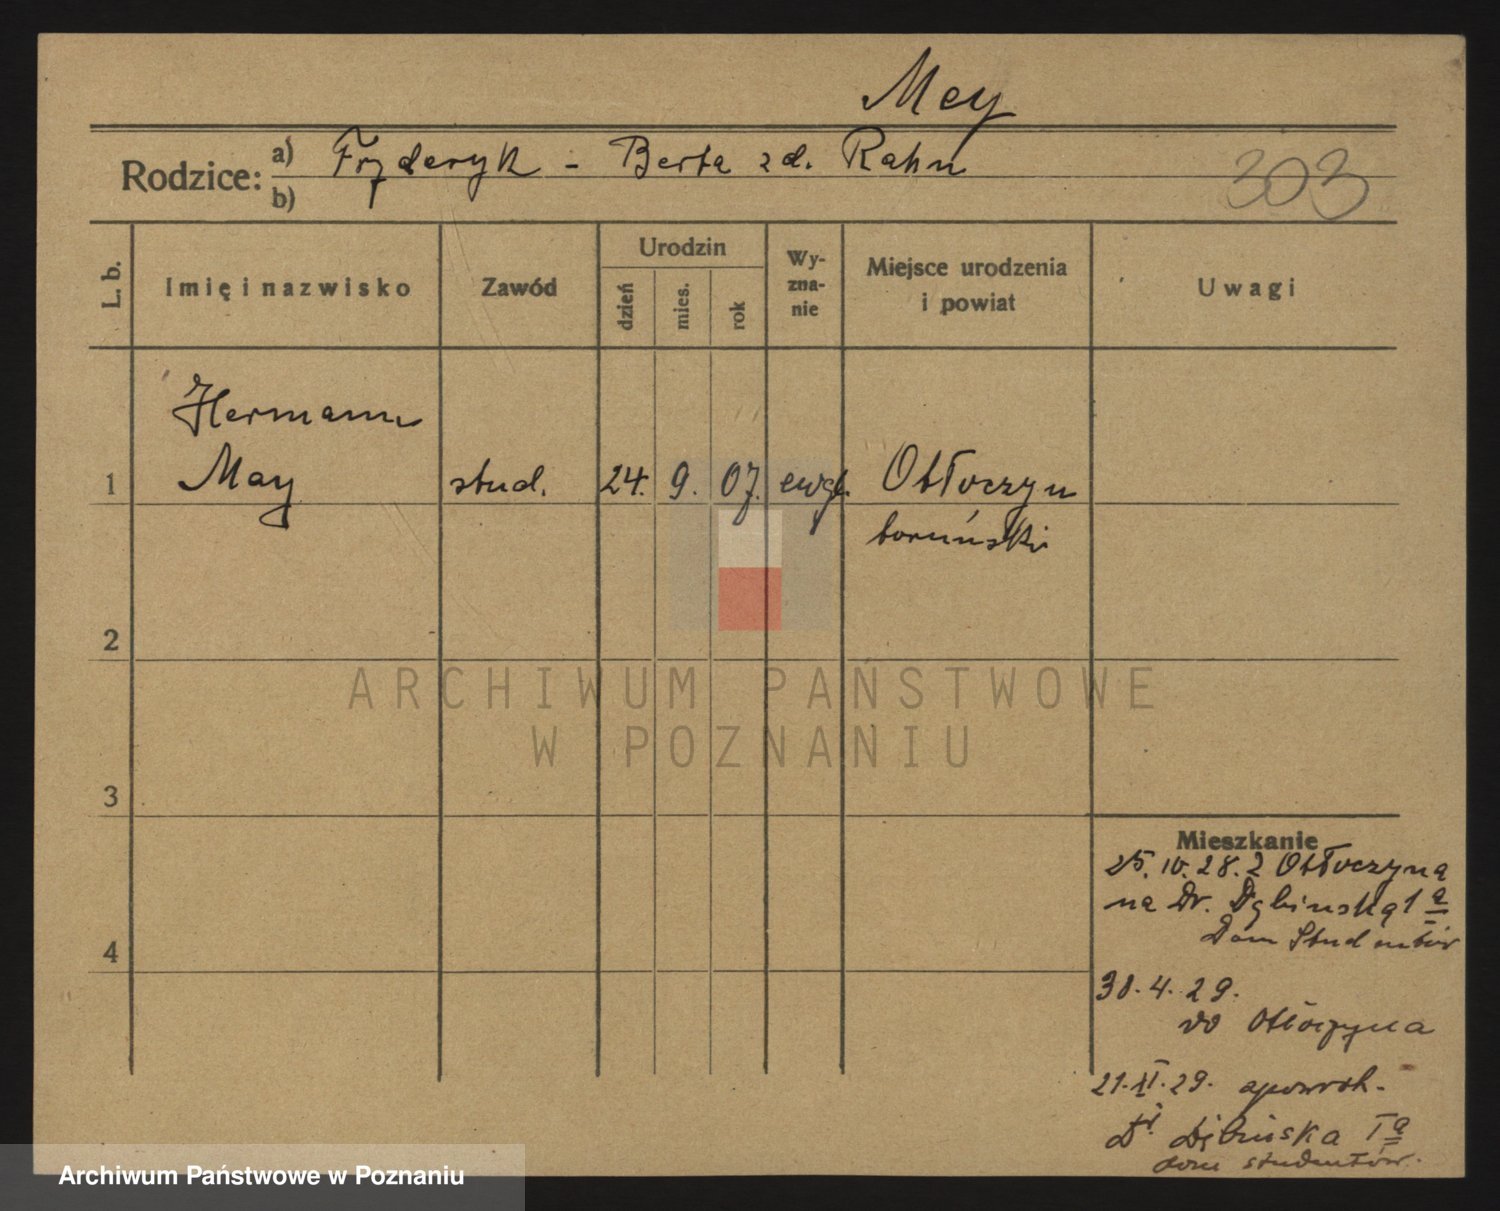 Mey
Rodzice: a) Fryderyk - Berta zd. Rahn
b)
303
L. b.
Imię i nazwisko
Zawód
Urodzin
dzień
mies.
rok
Wy-
zna-
nie
Miejsce urodzenia
i powiat
Uwagi
Hermann
1 May stud. 24. 9. 07. ewgl. Otłoczyn
toruński
2
ARCHIWUM PAŃSTWOWE
W POZNANIU
3
Mieszkanie
25. IV. 28. z Otłoczyna
na Dr. Dębińską 1 a
Dom Studentów
4
30. 4. 29.
do Otłoczyna
21. XI. 29. spowrot.
Dębińska I a
dom studentów.
Archiwum Państwowe w Poznaniu